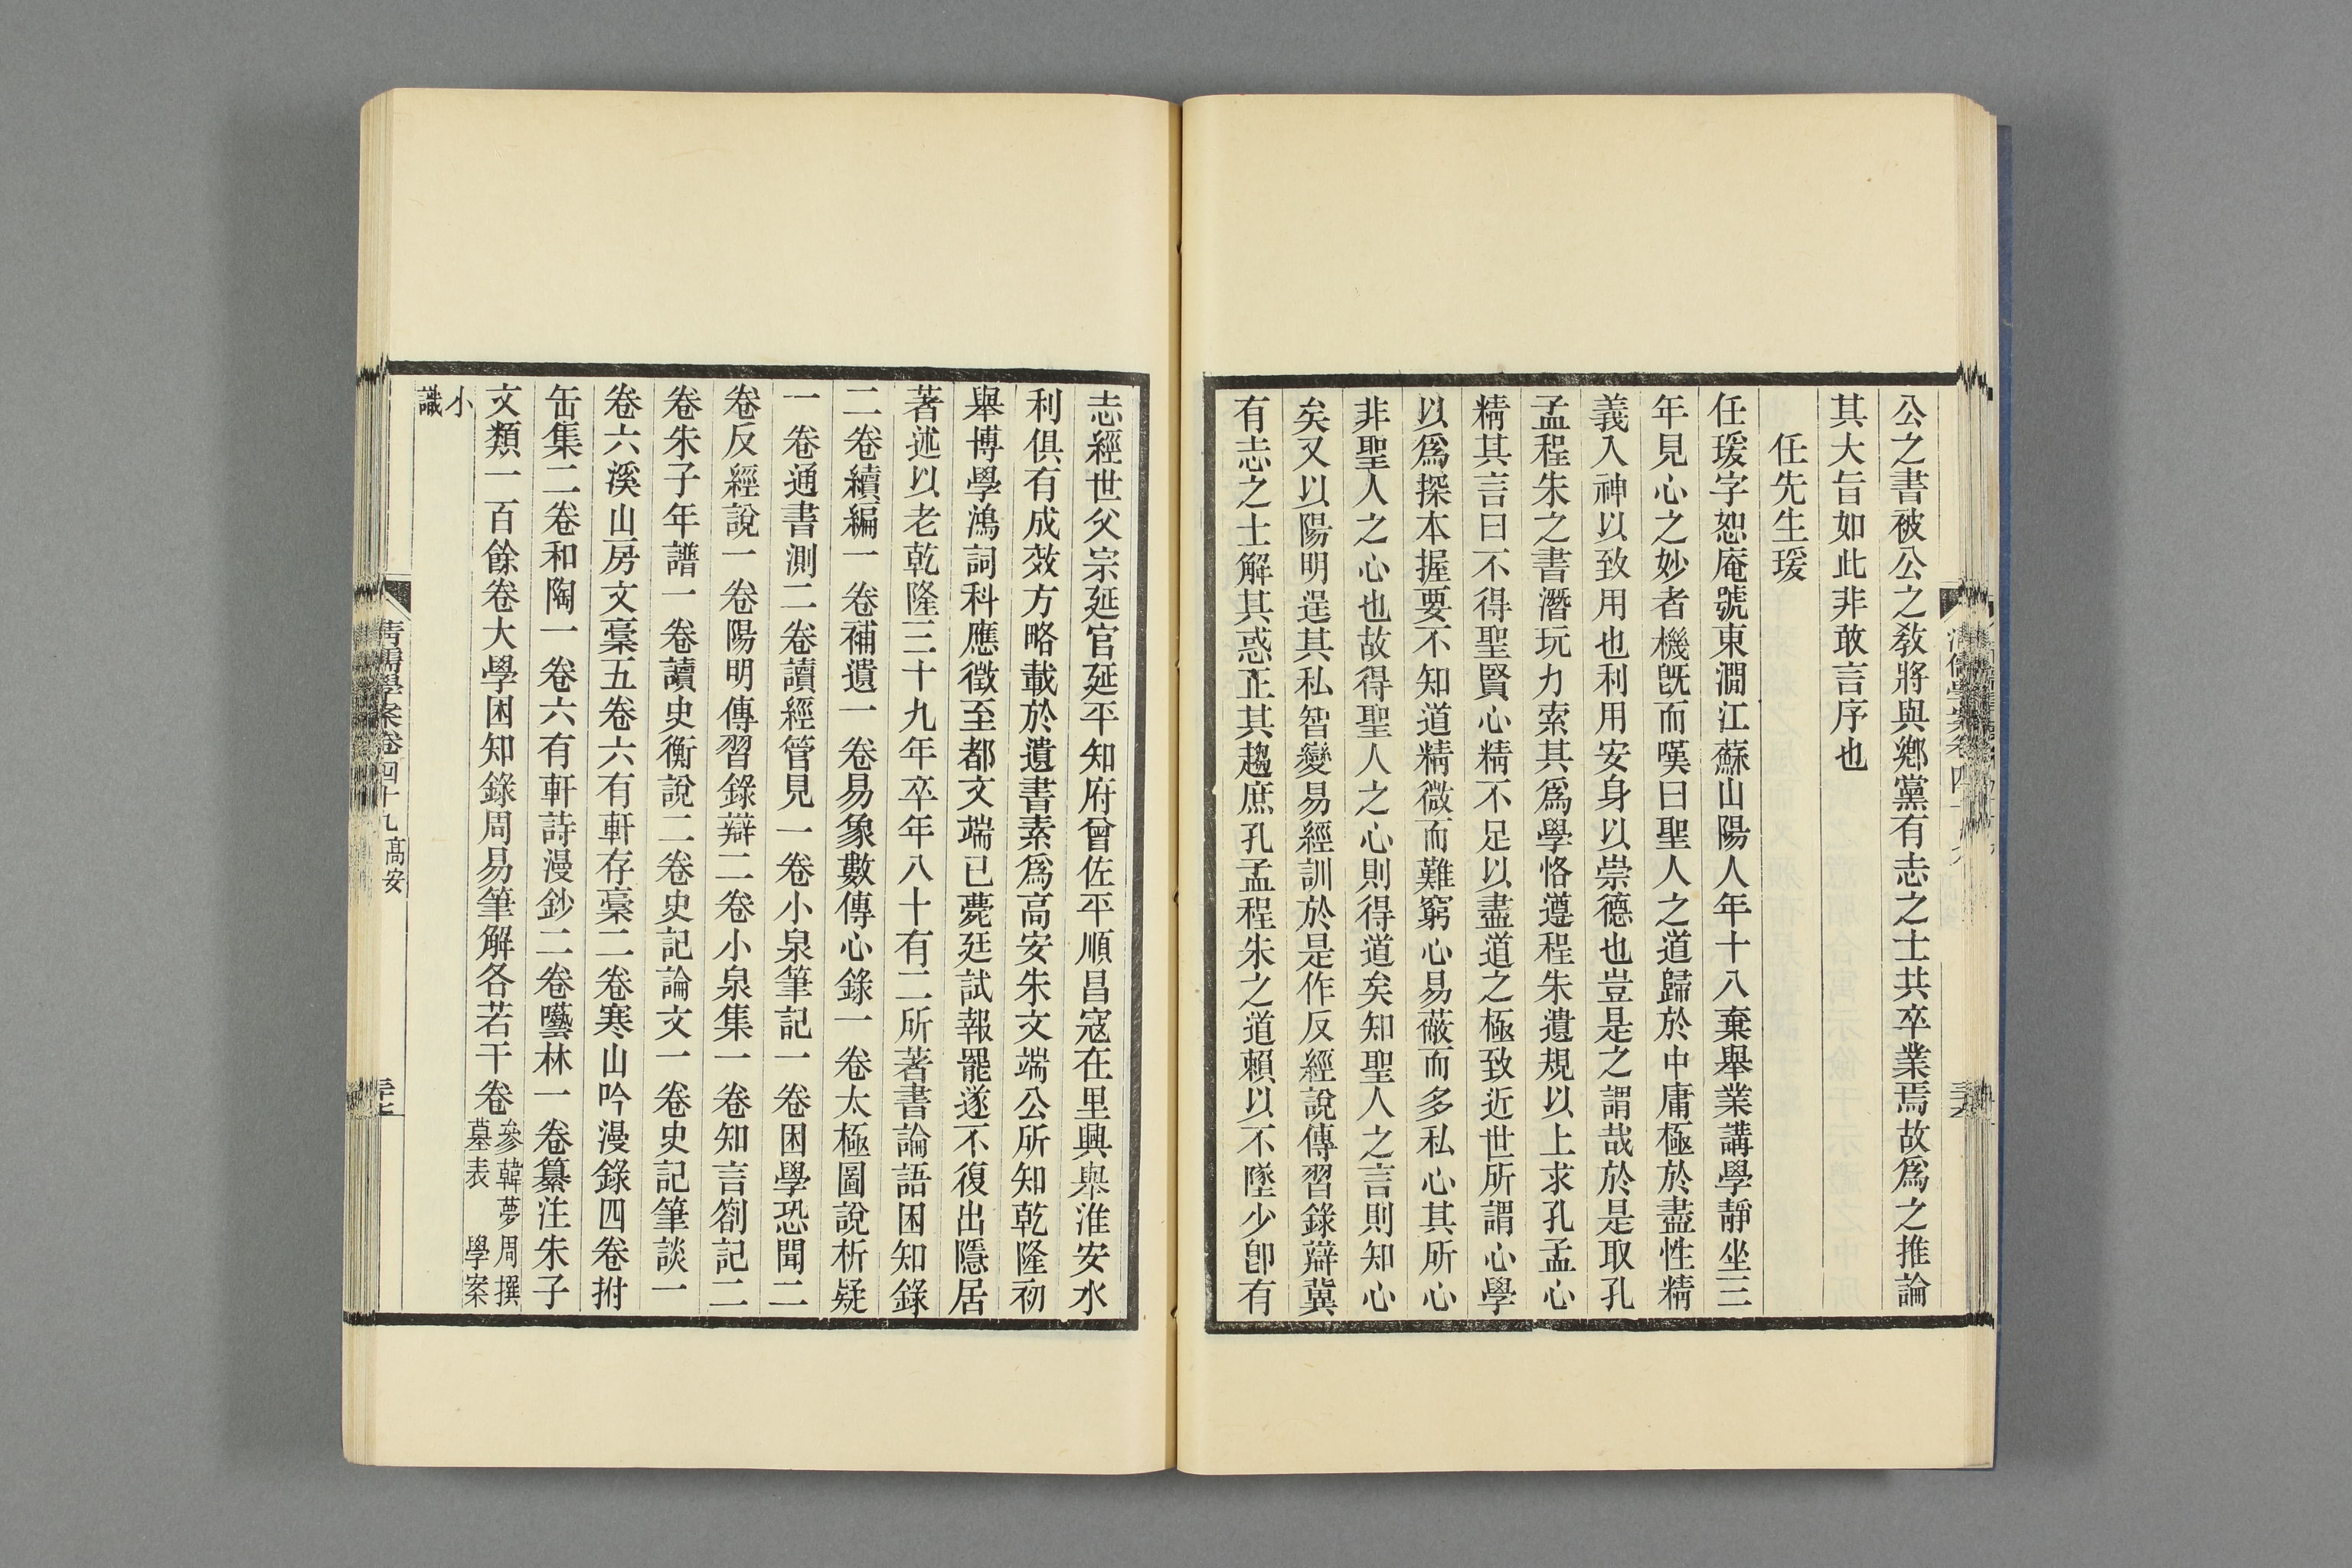 公之書被公之敎將與鄉黨有志之士共卒業焉故爲之推論
其大旨如此非敢言序也
任先生瑗
任瑗字恕庵號東澗江蘇山陽人年十八棄舉業講學靜坐三
年見心之妙者機旣而嘆曰聖人之道歸於中庸極於盡性精
義入神以致用也利用安身以崇德也豈是之謂哉於是取孔
孟程朱之書潛玩力索其爲學恪遵程朱遺規以上求孔孟心
精其言曰不得聖賢心精不足以盡道之極致近世所謂心學
以爲探本握要不知道精微而難窮心易蔽而多私心其所心
非聖人之心也故得聖人之心則得道矣知聖人之言則知心
矣又以陽明逞其私智變易經訓於是作反經說傳習錄辯冀
有志之士解其惑正其趨庶孔孟程朱之道賴以不墜少卽有
志經世父宗延官延平知府曾佐平順昌寇在里興舉淮安水
利俱有成效方略載於遺書素爲高安朱文端公所知乾隆初
舉博學鴻詞科應徵至都文端已薨廷試報罷遂不復出隱居
著述以老乾隆三十九年卒年八十有二所著書論語困知錄
二卷續編一卷補遺一卷易象數傳心錄一卷太極圖說析疑
一卷通書測二卷讀經管見一卷小泉筆記一卷困學恐聞二
卷反經說一卷陽明傳習錄辯二卷小泉集一卷知言劄記二
卷朱子年譜一卷讀史衡說二卷史記論文一卷史記筆談一
卷六溪山房文稾五卷六有軒存稾二卷寒山吟漫錄四卷拊
缶集二卷和陶一卷六有軒詩漫鈔二卷囈林一卷纂注朱子
文類一百餘卷大學困知錄周易筆解各若干卷參韓夢周撰墓表學案
小識
清儒學案卷四十九 高安